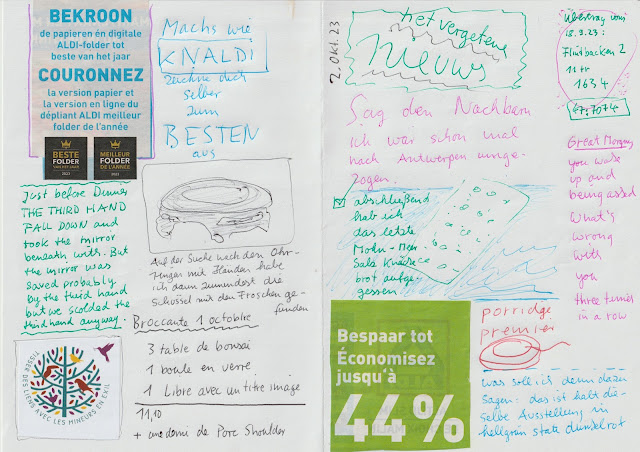 BEKROON
de papieren én digitale
ALDI-folder tot
beste van het jaar
COURONNEZ
la version papier et
la version en ligne du
dépliant ALDI meilleur
folder de l'année
BESTE
FOLDER
VAN HET JAAR
2023
MEILLEUR
FOLDER
DE L'ANNÉE
2023
Machs wie
KNALDI
zeichne dich
selber
zum
BESTEN
aus
Just before Dinner
THE THIRD HAND
FALL DOWN and
took the mirror
beneath with. But
the mirror was
saved probably
by the third hand
but we scolded the
third hand anyway.
Auf der Suche nach den Ohr-
Finger mit Händen habe
ich dann zumindest die
Schüssel mit den Fröschen ge-
funden
Broccante 1 octobre
3 table de bonsai
1 boule en verre
1 Libre avec un titre image
11,10
+ une demi de Porc Shoulder
TISSER DES LIENS AVEC LES MINEURS EN EXIL
2. Okt. 23
het vergetene
nieuws
Übertrag vom
18.9.23:
Flintbacken 2
11 tr
1634
47,7074
Sag den Nachbarn
ich war schon mal
nach Antwerpen umge-
zogen.
abschließend
hab ich
das letzte
Mohn-Meer
Salz Knäcke
brot aufge-
gessen
Great Morgen
you wake
up and
being assed
What's
wrong
with
you
three times
in a row
Bespaar tot
Économisez
jusqu'à
44%
porridge
premier
was soll ich denn dazu
sagen: das ist halt die-
selbe Ausstellung in
hellgrün statt dunkelrot